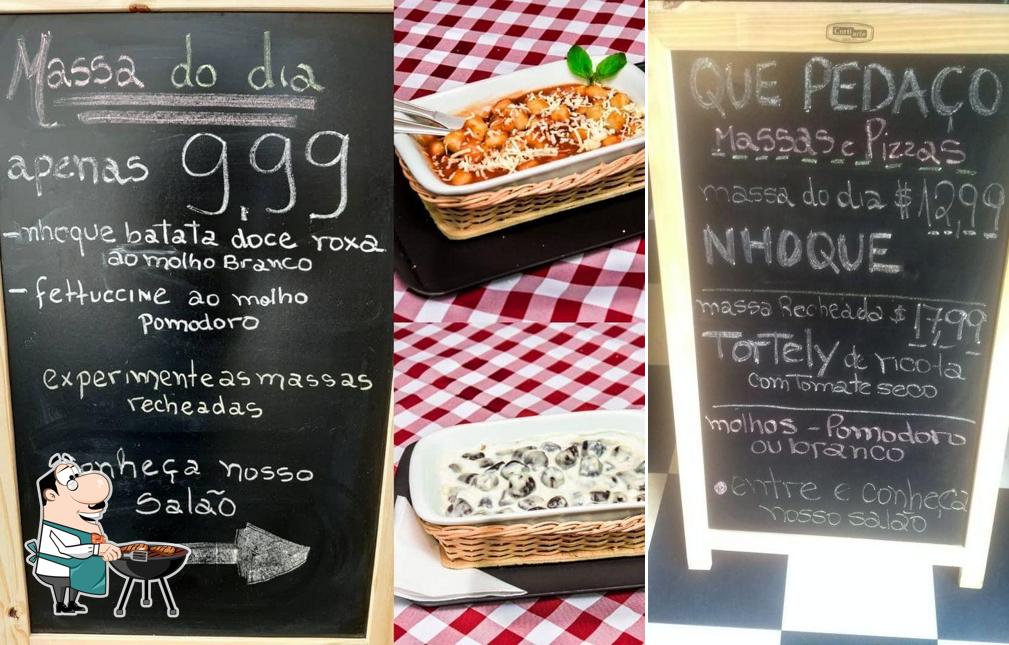 Massa do dia
apenas 9,99
- nhoque batata doce roxa
ao molho Branco
- fettuccine ao molho
Pomodoro
experimente as massas
recheadas
Conheça nosso
Salão
QUE PEDAÇO
Massas e Pizzas
massa do dia $12,99
NHOQUE
massa Recheada $17,99
Tortely de ricota
com Tomate seco
molhos - Pomodoro
ou branco
entre e conheça
nosso salão